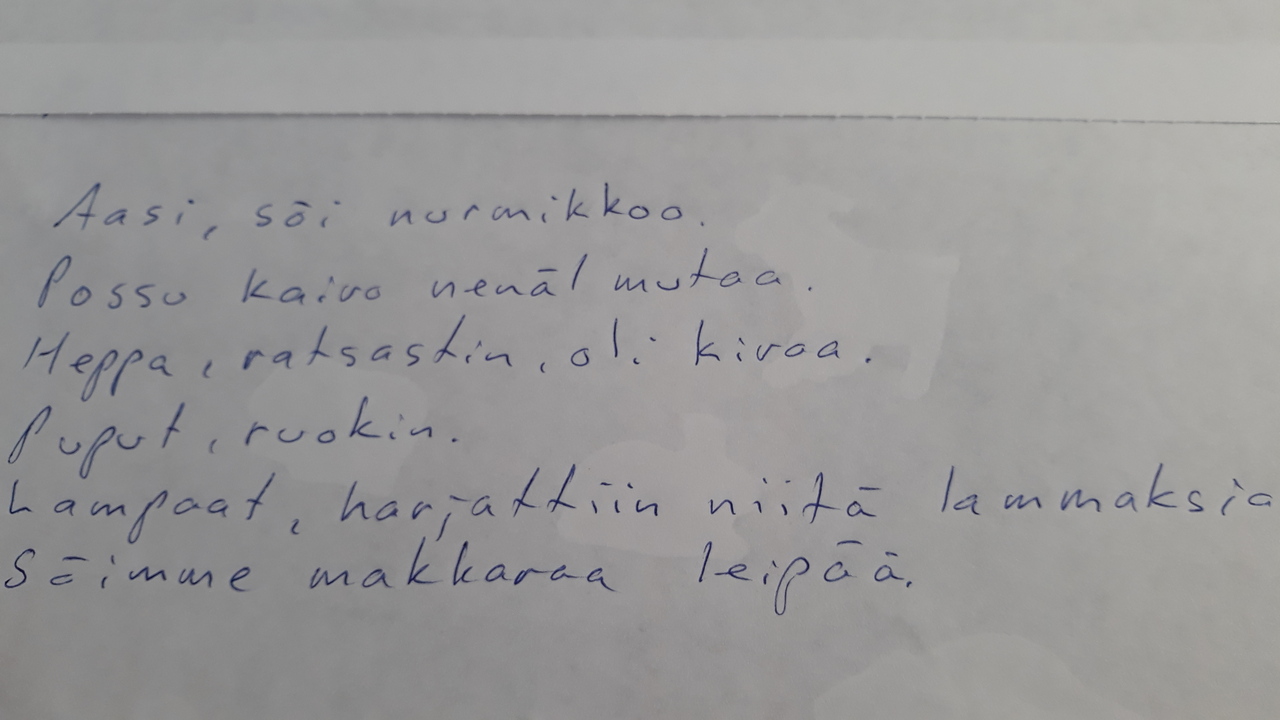 Aasi, söi nurmikkoo.
Possu kaivo nenäl mutaa.
Heppa, ratsastin, oli kivaa.
Puput, ruokin.
Lampaat, harjattiin niitä lammaksia
Söimme makkaraa leipää.